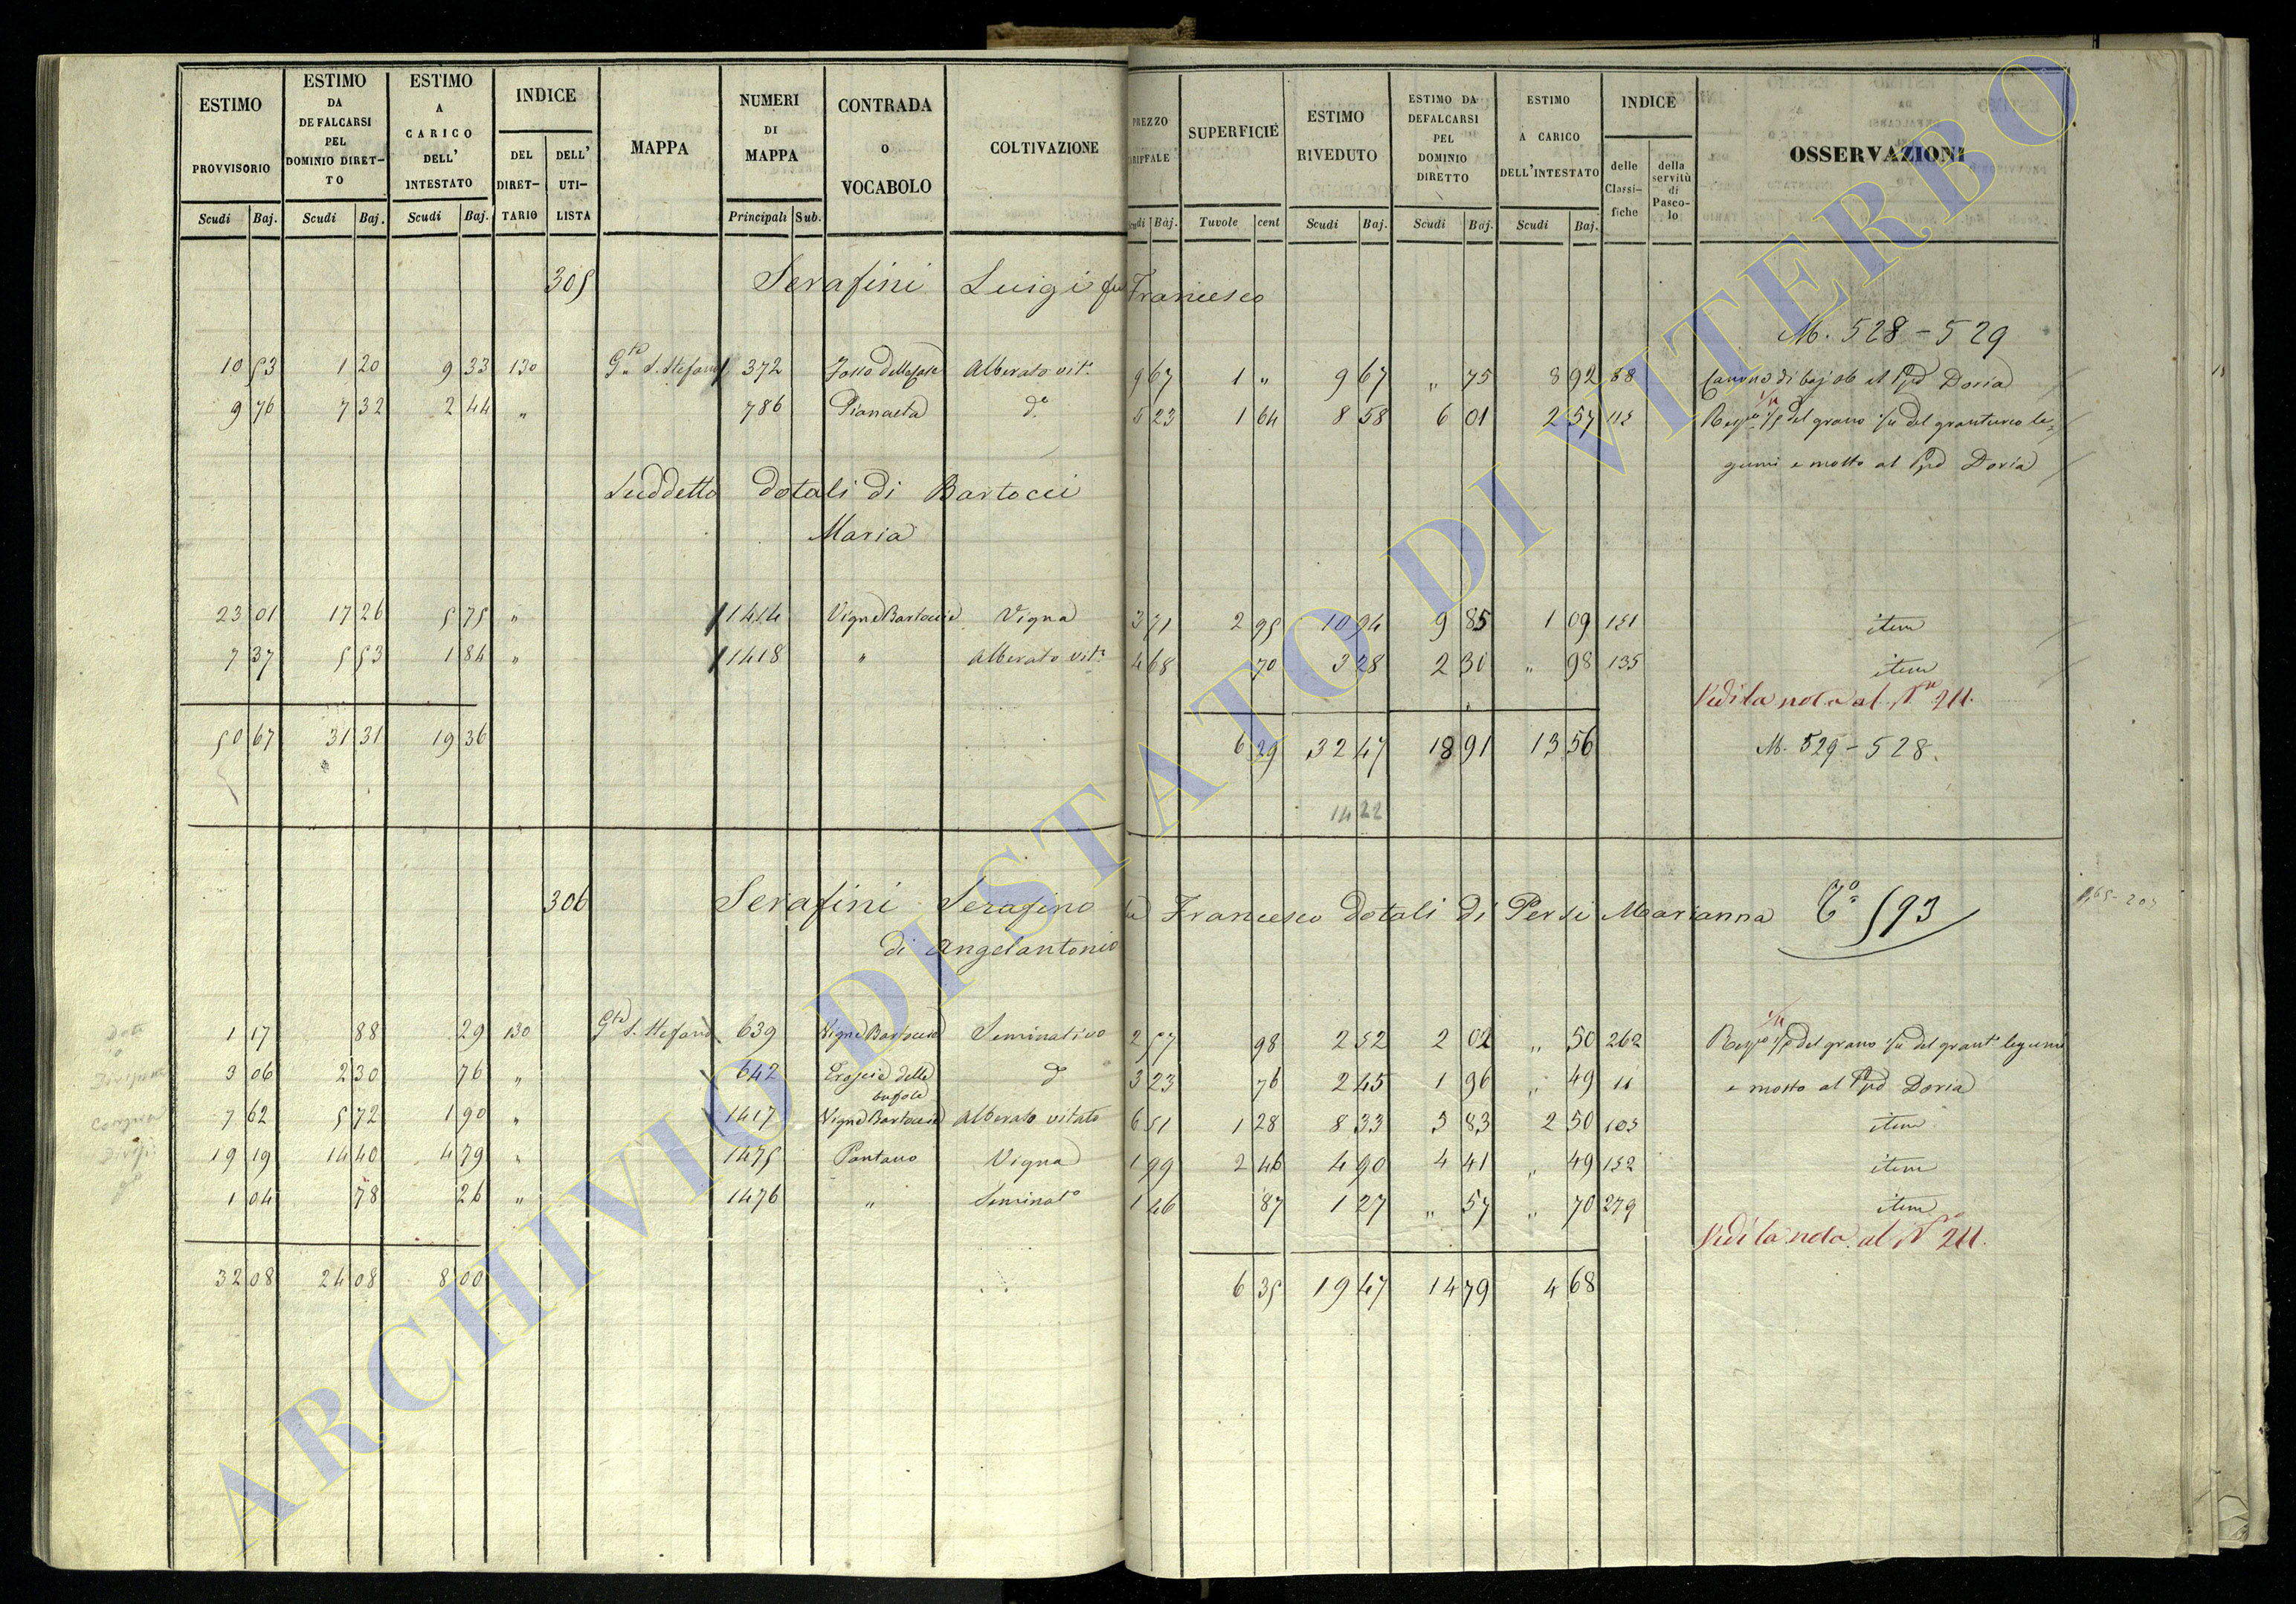 ESTIMO PROVVISORIO Scudi Baj. ESTIMO DA DEFALCARSI PEL DOMINIO DIRETTO Scudi Baj. ESTIMO A CARICO DELL' INTESTATO Scudi Baj. INDICE DEL DIRETTARIO DELL' UTILISTA MAPPA NUMERI DI MAPPA Principali Sub. CONTRADA O VOCABOLO COLTIVAZIONE PREZZO TARIFFALE Scudi Baj. SUPERFICIE Tavole cent ESTIMO RIVEDUTO Scudi Baj. ESTIMO DA DEFALCARSI PEL DOMINIO DIRETTO Scudi Baj. ESTIMO A CARICO DELL'INTESTATO Scudi Baj. INDICE delle Classifiche della servitù di Pascolo OSSERVAZIONI
305 Serafini Luigi fu Francesco
M. 528 - 529
10 53 1 20 9 33 130 Gte S. Stefano 372 Alberato vit.o 9 67 1 " 9 67 " 75 8 92 88 Canone di baj 06 al Ppe Doria
9 76 7 32 2 44 " 786 Pianaeta do 5 23 1 64 8 58 6 01 2 57 115 del grano del granturco le=
gumi e mosto al Ppe Doria
Suddetto dotali di Bartocci
Maria
23 01 17 26 5 75 " 1414 Vigne Bartoccie Vigna 3 71 2 95 10 94 9 85 1 09 151 item
7 37 5 53 1 84 " 1418 " Alberato vit.o 4 68 70 3 28 2 30 " 98 135 item
Vedi la nota al No 211.
50 67 31 31 19 36 6 29 32 47 18 91 13 56 M. 529 - 528.
14 22
306 Serafini Serafino fu Francesco dotali di Persi Marianna To 593
di Angelantonio
1 17 88 29 130 Gte S. Stefano 639 Vigne Bartoccie Seminativo 2 57 98 2 52 2 02 " 50 262 del grano del grant.o legumi
3 06 2 30 76 " 642 Troscie delle bufole do 3 23 76 2 45 1 96 " 49 11 e mosto al Ppe Doria
7 62 5 72 1 90 " 1417 Vigne Bartoccie Alberato vitato 6 51 1 28 8 33 5 83 2 50 103 item
19 19 14 40 4 79 " 1475 Pantano Vigna 1 99 2 46 4 90 4 41 " 49 152 item
1 04 78 26 " 1476 " Seminat.o 1 46 87 1 27 " 57 " 70 279 item
Vedi la nota al No 211.
32 08 24 08 8 00 6 35 19 47 14 79 4 68
ARCHIVIO DI STATO DI VITERBO